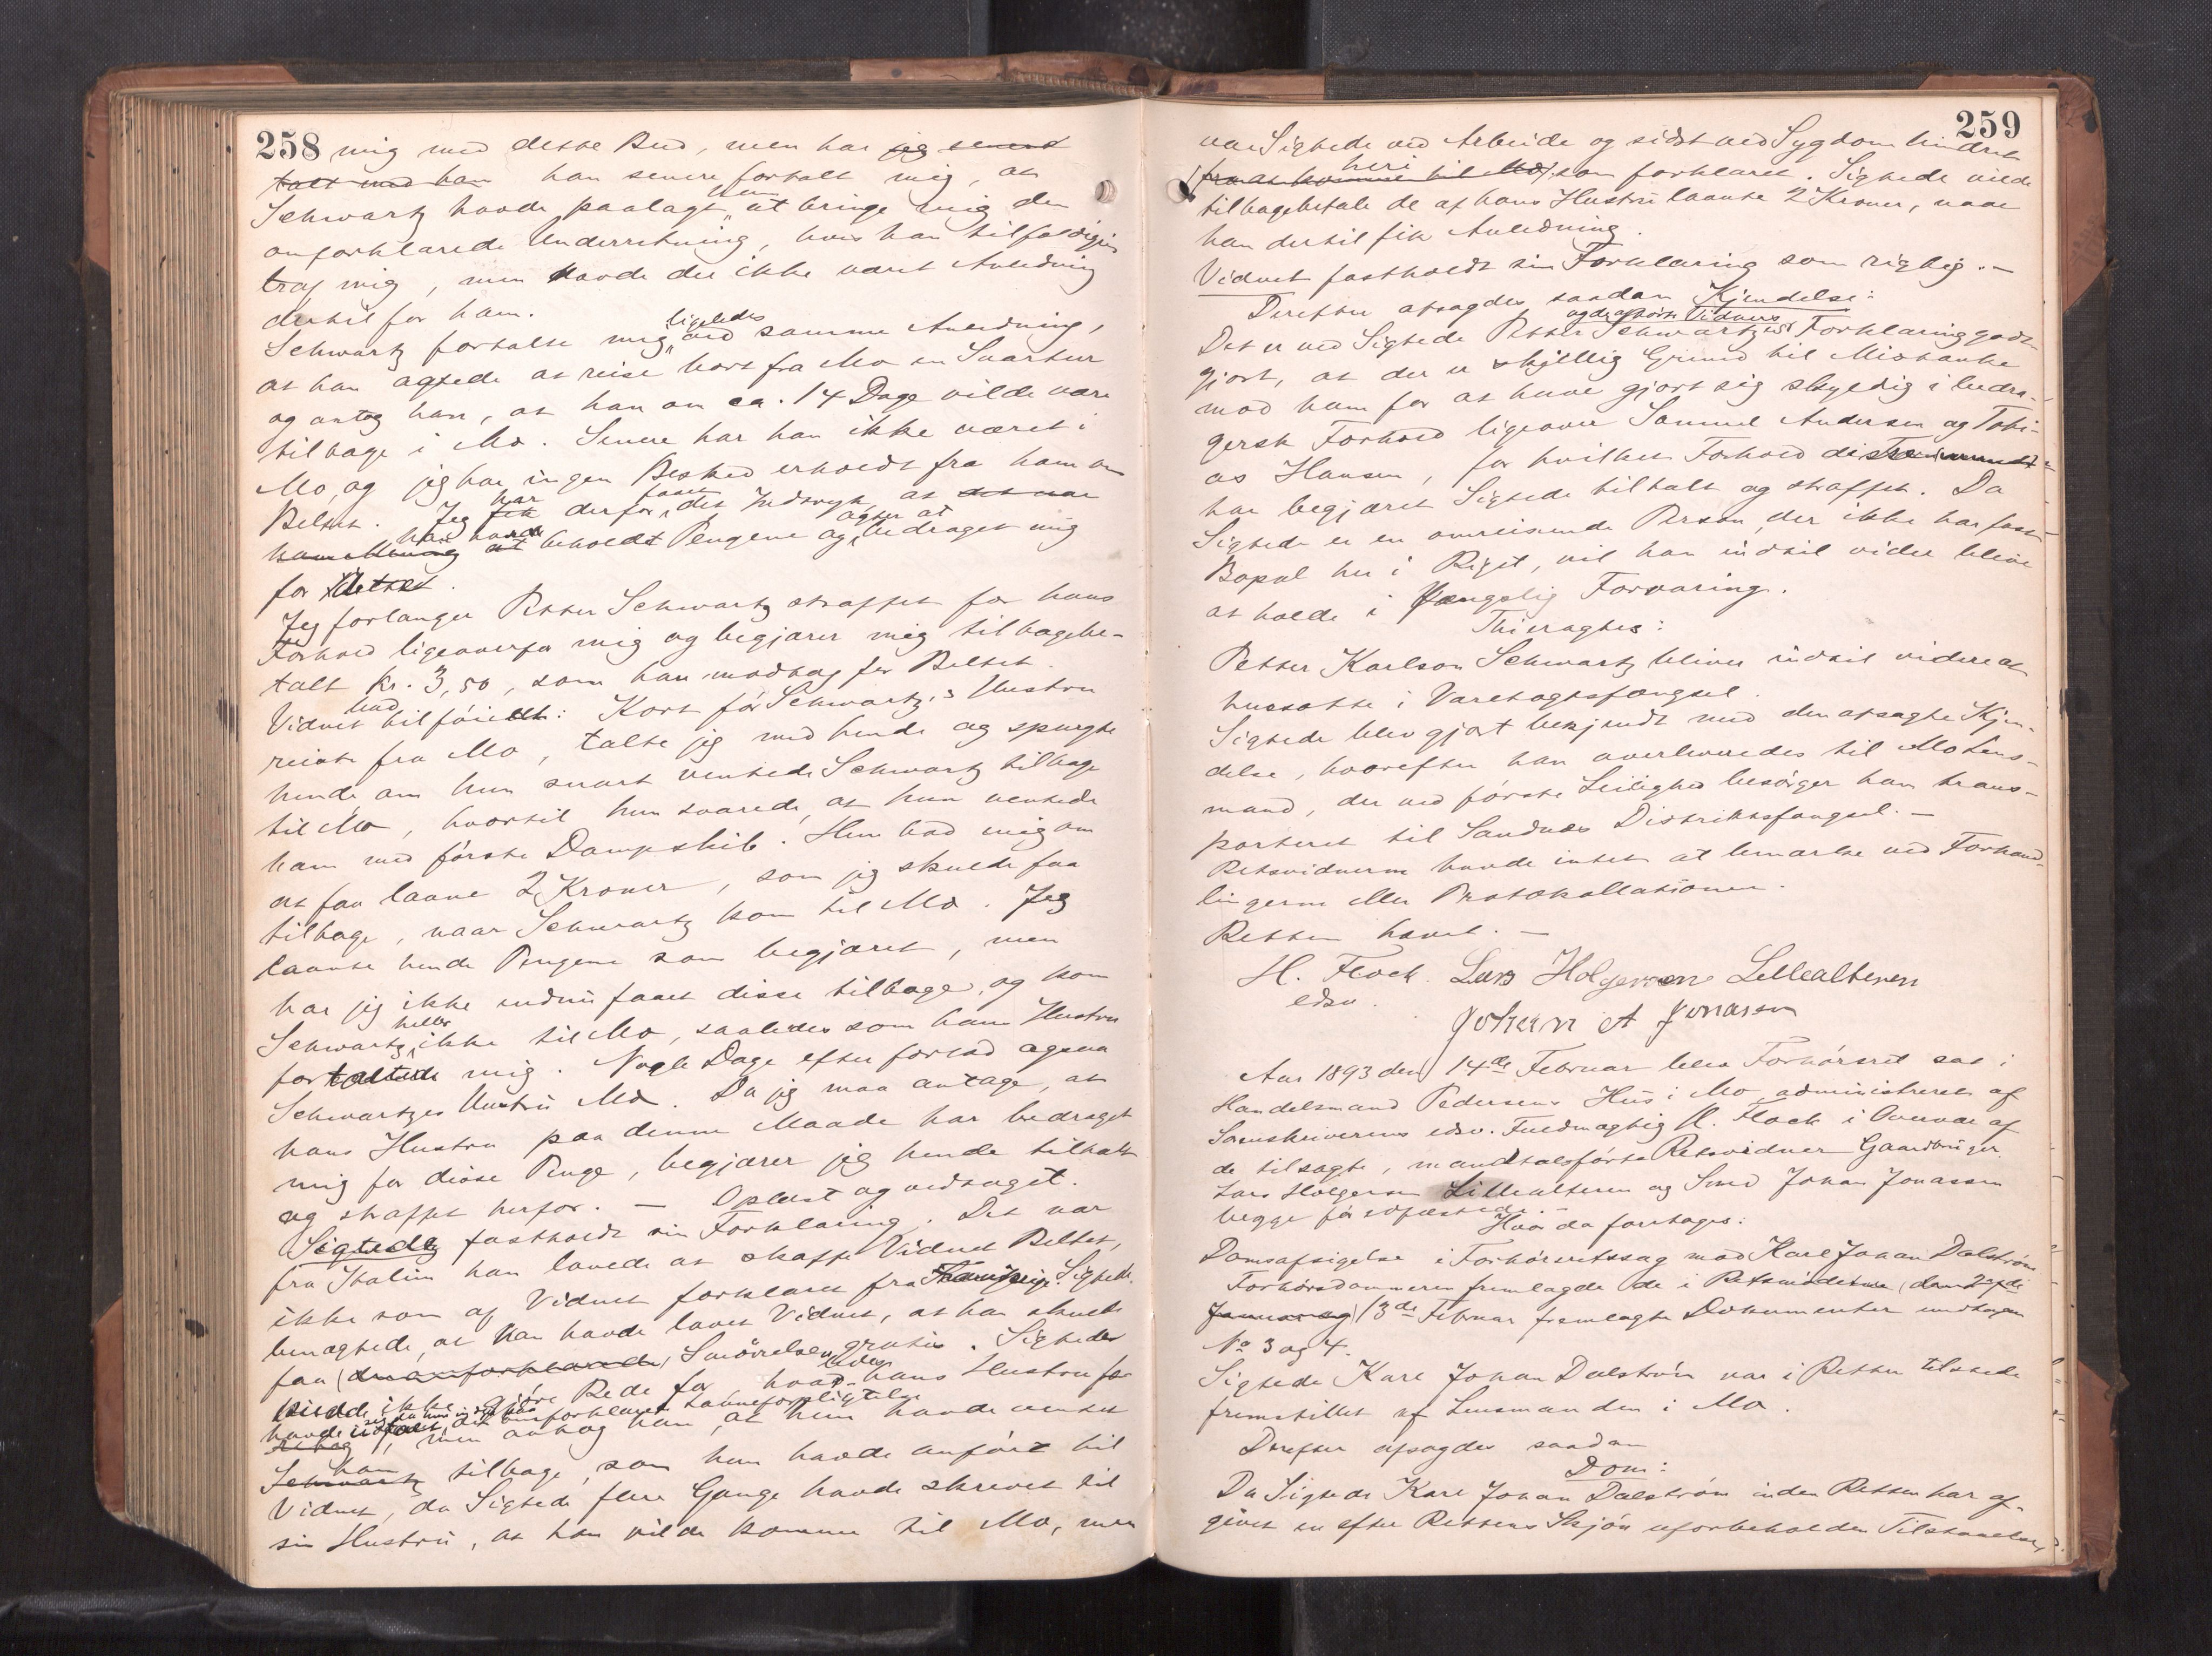 258
mig med dette Bud, men har jeg senere
talt med han han senere fortalt mig, at
Schwartz havde paalagt ham at bringe mig den
omforklarede Underretning, hvis han tilfældigvis
traf mig, men havde der ikke været Anledning
dertil for ham.
Schwartz fortalte mig ligeledes ved samme Anledning,
at han agtede at reise bort fra Mo en Snartur
og antog han, at han om ca. 14 Dage vilde være
tilbage i Mo. Senere har han ikke været i
Mo, og jeg har ingen Besked erholdt fra ham om
Beltet. Jeg fik har derfor faaet det Indtryk, at det var
hans Mening at han havde beholdt Pengene og agter at bedraget mig
for Beltet.
Jeg forlanger Petter Schwartz straffet for hans
Forhold ligeoverfor mig og begjærer mig tilbagebe-
talt Kr. 3,50, som han modtog for Beltet.
Vidnet tilføiede: Kort før Schwartz's Hustru
reiste fra Mo, talte jeg med hende og spurgte
hende, om hun snart ventede Schwartz tilbage
til Mo, hvortil hun svarede, at hun ventede
ham med første Dampskib. Hun bad mig om
at faa laane 2 Kroner, som jeg skulde faa
tilbage, naar Schwartz kom til Mo. Jeg
laante hende Pengene som begjæret, men
har jeg ikke endnu faaet disse tilbage, og kom
Schwartz heller ikke til Mo, saaledes som hans Hustru
fortalte mig. Nogle Dage efter forlod ogsaa
Schwartzes Hustru Mo. Da jeg maa antage, at
hans Hustru paa denne Maade har bedraget
mig for disse Penge, begjærer jeg hende tiltalt
og straffet herfor. — Oplæst og vedtaget.
Sigtede fastholdt sin Forklaring. Det var
fra Italien han lovede at skaffe Vidnet Beltet,
ikke som af Vidnet forklaret fra Frankrige. Sigtede
benægtede, at han havde lovet Vidnet, at han skulde
faa (den omforklarede) Smørelsen gratis. Sigtede
kunde ikke gjøre Rede for hvorledes hans Hustru for
havde
, men antog han, at hun havde ventet
Schwartz ham tilbage, som hun havde anført til
Vidnet, da Sigtede flere Gange havde skrevet til
sin Hustru, at han vilde komme til Mo, men
259
var Sigtede ved Arbeide og sidst ved Sygdom hindret
(fra at komme til Mo) heri som forklaret. Sigtede vilde
tilbagebetale de af hans Hustru laante 2 Kroner, naar
han dertil fik Anledning.
Vidnet fastholdt sin Forklaring som rigtig. —
Derefter afsagdes saadan Kjendelse:
Det er ved Sigtede Petter Schwartz's og de afhørte Vidners Forklaring godt-
gjort, at der er skjellig Grund til Mistanke
mod ham for at have gjort sig skyldig i bedra-
gersk Forhold ligeover Samuel Andersen og Tobi-
as Hansen, for hvilket Forhold disse
har begjæret Sigtede tiltalt og straffet. Da
Sigtede er en omreisende Person, der ikke har fast
Bopæl her i Riget, vil han indtil videre blive
at holde i fængslig Forvaring.
Thi eragtes:
Petter Karlson Schwartz bliver indtil videre at
hensætte i Varetægtsfængsel.
Sigtede blev gjort bekjendt med den afsagte Kjen-
delse, hvorefter han overleveredes til Mo Lens-
mand, der ved første Leilighed besørger ham trans-
porteret til Sandnes Distriktsfængsel. —
Retsvidnerne havde intet at bemærke ved Forhand-
lingerne eller Protokollationen.
Retten hævet. —
H. Flock. Lars Holgersen Lillealteren
edsv.
Johan A Jonasen
Aar 1893 den 14de Februar blev Forhørsret sat i
Handelsmand Pedersens Hus i Mo, administreret af
Sorenskriverens edsv. Fuldmægtig H. Flock i Overvær af
de tilsagte, mandtalsførte Retsvidner Gaardbruger
Lars Holgersen Lillealteren og Smed Johan Jonassen
begge før edfæstede. —
Hvor da foretages:
Domsafsigelse i Forhørsretssag mod Karl Johan Dalstrøm
Forhørsdommeren fremlagde de i Retsmøderne (den 27de
Januar og) 3de Februar fremlagte Dokumenter undtagen
No 3 og 4.
Sigtede Karl Johan Dalstrøm var i Retten tilstede
fremstillet af Lensmanden i Mo.
Derefter afsagdes saadan
Dom:
Da Sigtede Karl Johan Dalstrøm inden Retten har af-
givet en efter Rettens Skjøn uforbeholden Tilstaaelse,